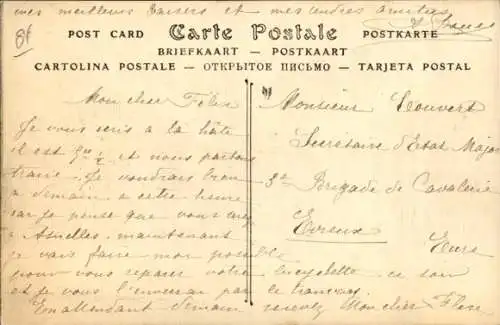 mes meilleurs baisers et mes tendres amitiés
81
POST CARD Carte Postale POSTKARTE
BRIEFKAART — POSTKAART
CARTOLINA POSTALE — ОТКРЫТОЕ ПИСЬМО — TARJETA POSTAL
Mon cher
Je vous écris a la hâte
il est et nous partons
Je voudrais bien
a demain a cette heure
car je pense que vous
maintenant
je vais faire mon possible
pour vous reparer votre bicyclette ce soir
et je vous l'enverrai par le tramway
En attendant demain recevez Mon cher
Monsieur Louvert
Secrétaire d'Etat Major
3e Brigade de Cavalerie
Evreux
Eure